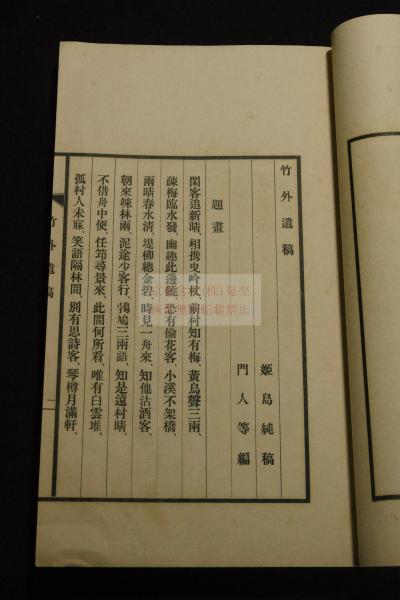 竹外遺稿
姬島純稿
門人等編
題畫
閑客追新晴、相携曳吟杖、前村知有梅、黃鳥聲三兩、
疎梅臨水發、幽趣此邊饒、恐有偷花客、小溪不架橋、
雨晴春水淸、堤柳總金碧、時見一舟來、知他沽酒客、
朝來竦林雨、泥途少客行、鵓鳩三兩語、知是遠村晴、
不借舟中便、任筇尋景來、此間何所看、唯有白雲堆、
孤村人未寐、笑語隔林間、別有思詩客、琴樽月滿軒、
竹外遺稿
一